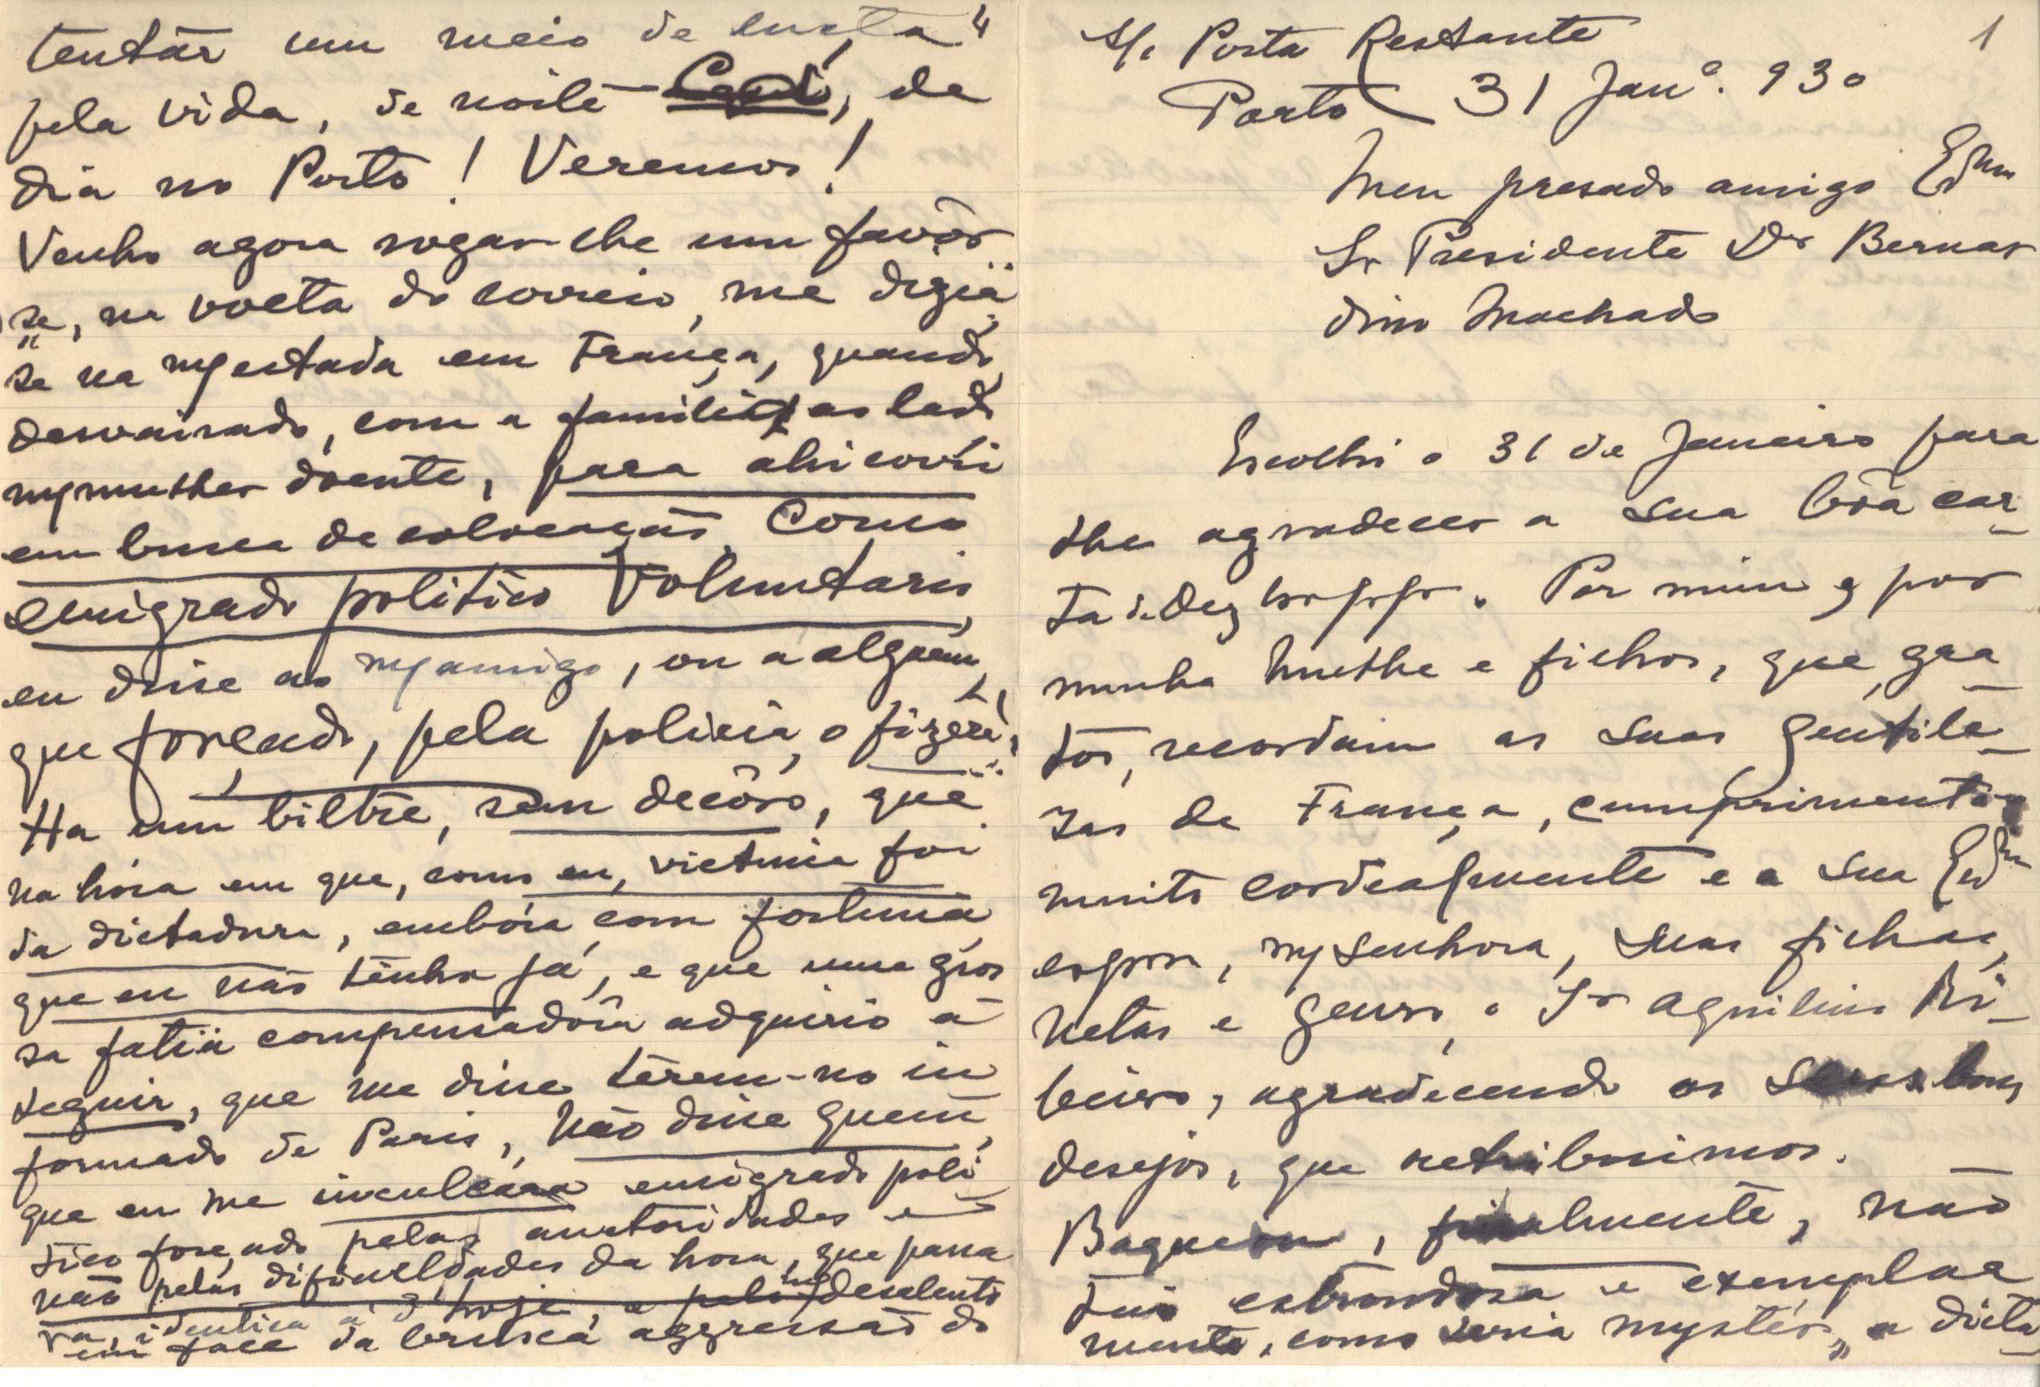 1
S/c Posta Restante
Porto 31 Janº. 930
Meu presado amigo Exmo
Sr Presidente Dr Bernar
dino Machado
Escolhi o 31 de Janeiro para
lhe agradecer a sua bôa car-
ta de Dez. Por mim e por
minha mulhe e filhos, que, gra-
tos, recordam as suas gentile-
zas de França, cumprimento
muito cordealmente e a sua Exma
esposa, mª senhora, suas filhas,
netas e genro, o Sr Aquilino Ri-
beiro, agradecendo os seus bons
desejos, que retribuimos.
Baqueou, finalmente, não
tão estrondosa e exemplar
mente, como seria mystér, a dicta-
4
tentar um meio de lucta
pela vida, de noite, de
dia no Porto! Veremos!
Venho agora rogar-lhe um favôr
se, na volta do correio, me dizia
se na mª estada em França, quando
desvairado, com a familia ao lado
mª mulher doente, para ahi corri
em busca de colocação, como
emigrado politico voluntario,
eu disse ao mª amigo, ou a alguem,
que forçado, pela policia, o fizera,
Ha um biltre, sem decôro, que
na hora em que, como eu, victima foi
da dictadura, embora com fortuna
que eu não tenho já, e que uma gros
sa fatia compensadora adquirio a
seguir, que me disse terem-no in
formado de Paris, não disse quem,
que eu me inculcara emigrado poli
tico forçado pelas auctoridades e
não pelas dificuldades da hora, que passa
va, identica á d'hoje, e pelo desalento
em face da brusca aggressão do